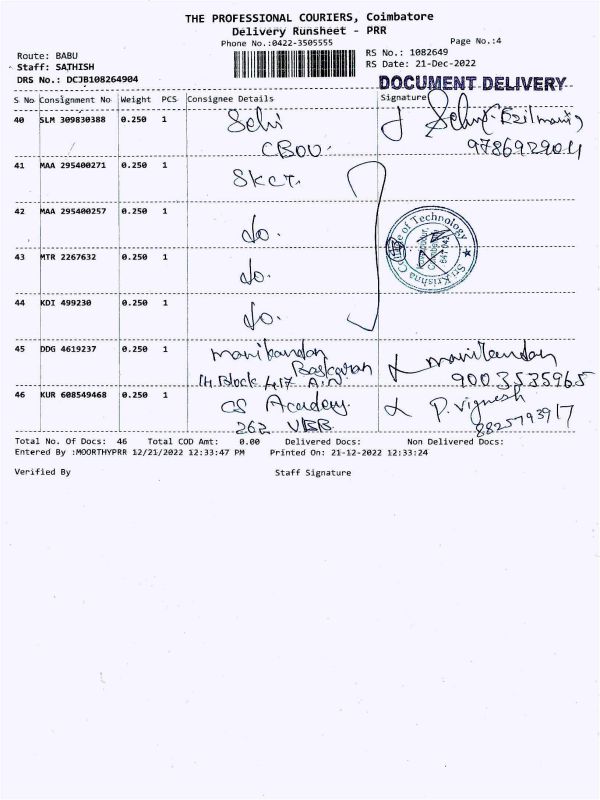 THE PROFESSIONAL COURIERS, Coimbatore
Delivery Runsheet - PRR
Phone No.:0422-3505555
Page No.:4
Route: BABU
RS No.: 1082649
Staff: SATHISH
RS Date: 21-Dec-2022
DRS No.: DCJB108264904
DOCUMENT DELIVERY
S No Consignment No Weight PCS Consignee Details Signature
40 SLM 309830388 0.250 1 Selvi
9786929011
41 MAA 295400271 0.250 1 SKCT.
42 MAA 295400257 0.250 1 do.
Sri Krishna College of Technology
43 MTR 2267632 0.250 1 do.
44 KDI 499230 0.250 1 do.
45 DDG 4619237 0.250 1 manikandan manikandan
Baskaran
H.Block 417 9003535965
46 KUR 608549468 0.250 1 CS Academy. P. Vignesh
262 8825793917
Total No. Of Docs: 46 Total COD Amt: 0.00 Delivered Docs: Non Delivered Docs:
Entered By :MOORTHYPRR 12/21/2022 12:33:47 PM Printed On: 21-12-2022 12:33:24
Verified By Staff Signature